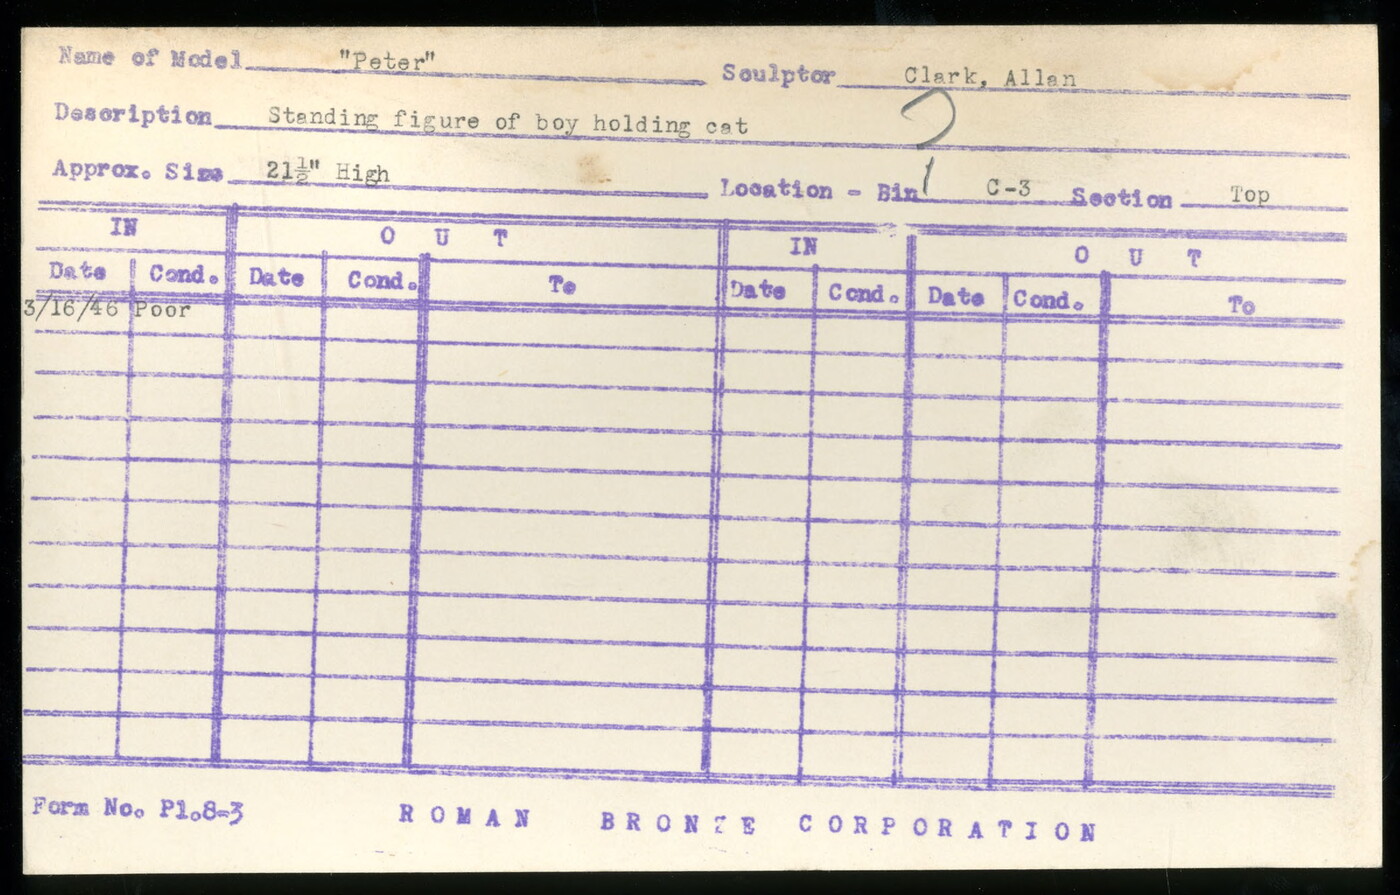 Name of Model "Peter" Sculptor Clark, Allan
Description Standing figure of boy holding cat
Approx. Size 21½" High Location - Bin C-3 Section Top
IN OUT IN OUT
Date Cond. Date Cond. To Date Cond. Date Cond. To
3/16/46 Poor
Form No. Pl.8-3 ROMAN BRONZE CORPORATION